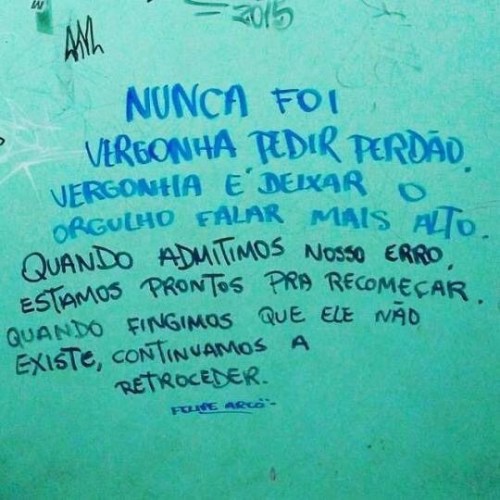 2015
NUNCA FOI
VERGONHA PEDIR PERDÃO.
VERGONHA É DEIXAR O
ORGULHO FALAR MAIS ALTO.
QUANDO ADMITIMOS NOSSO ERRO,
ESTAMOS PRONTOS PRA RECOMEÇAR.
QUANDO FINGIMOS QUE ELE NÃO
EXISTE, CONTINUAMOS A
RETROCEDER.
FELIPE ARCO